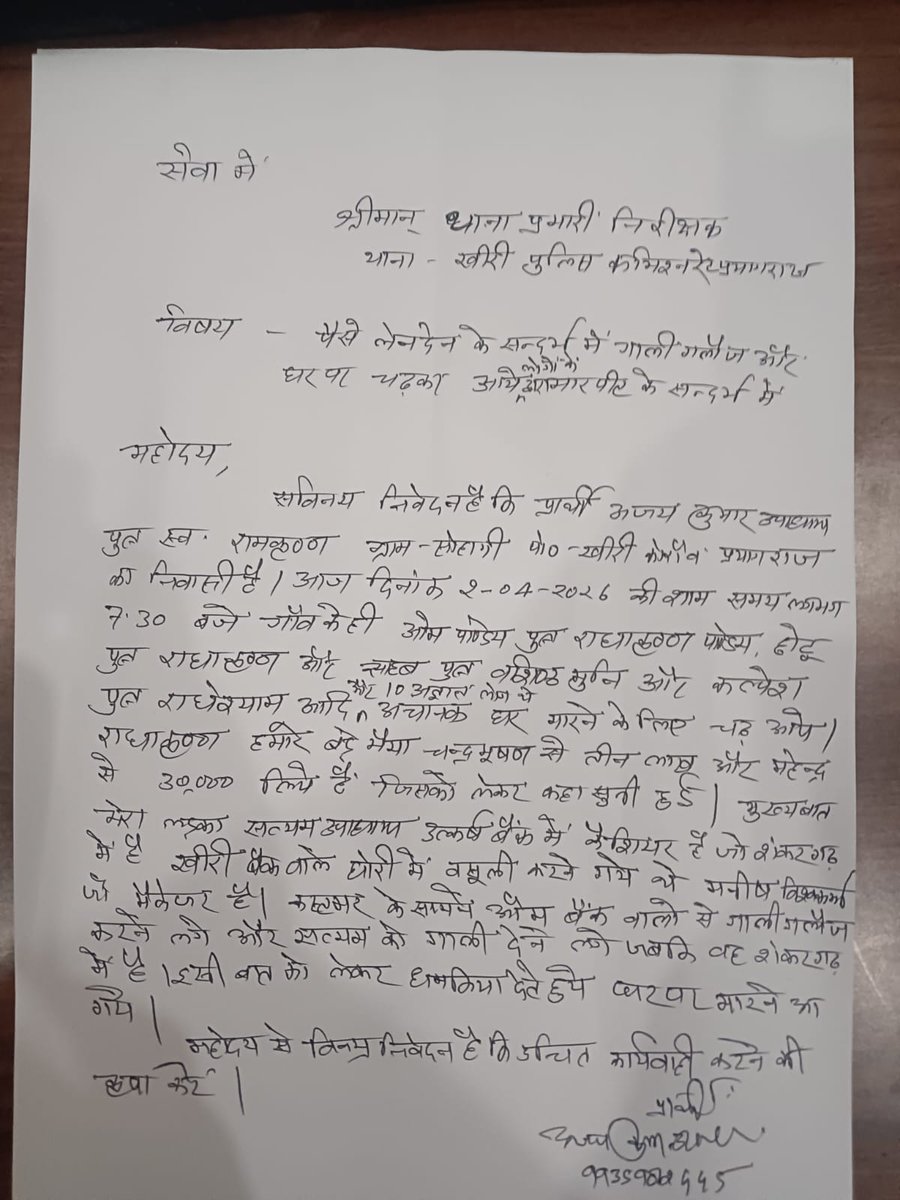 सेवा में
श्रीमान् थाना प्रभारी निरीक्षक
थाना - खीरी पुलिस कमिश्नरेट प्रयागराज
विषय - पैसे लेनदेन के सन्दर्भ में गाली गलौज और
घर पर चढ़कर आये लोगों के द्वारा मारपीट के सन्दर्भ में
महोदय,
सविनय निवेदन है कि प्रार्थी अजय कुमार उपाध्याय
पुत्र स्व. रामकृष्ण ग्राम-सोहागी पो०-खीरी प्रयागराज
का निवासी है। आज दिनांक 2-04-2026 की शाम समय लगभग
7:30 बजे गाँव के ही ओम पाण्डेय पुत्र राधाकृष्ण पाण्डेय, छोटू
पुत्र राधाकृष्ण और पुत्र वशिष्ठ मुनि और कल्पेश
पुत्र राधेश्याम आदि और 10 अज्ञात लोग थे अचानक घर मारने के लिए चढ़ आये।
राधाकृष्ण हमारे बड़े भैया चन्द्रभूषण से तीन लाख और महेन्द्र
से 30,000 लिये हैं जिसको लेकर कहा सुनी हुई। मुख्य बात
मेरा लड़का सत्यम उपाध्याय उत्कर्ष बैंक में कैशियर है जो शंकरगढ़
में है खीरी बैंक वाले घोरी में वसूली करने गये थे मनीष विश्वकर्मा
जो मैनेजर है। कस्टमर के सामने ओम बैंक वालो से गाली गलौज
करने लगे और सत्यम को गाली देने लगे जबकि वह शंकरगढ़
में है। इसी बात को लेकर धमकिया देते हुये घर पर मारने आ
गये।
महोदय से विनम्र निवेदन है कि उचित कार्यवाही करने की
कृपा करें।
प्रार्थी